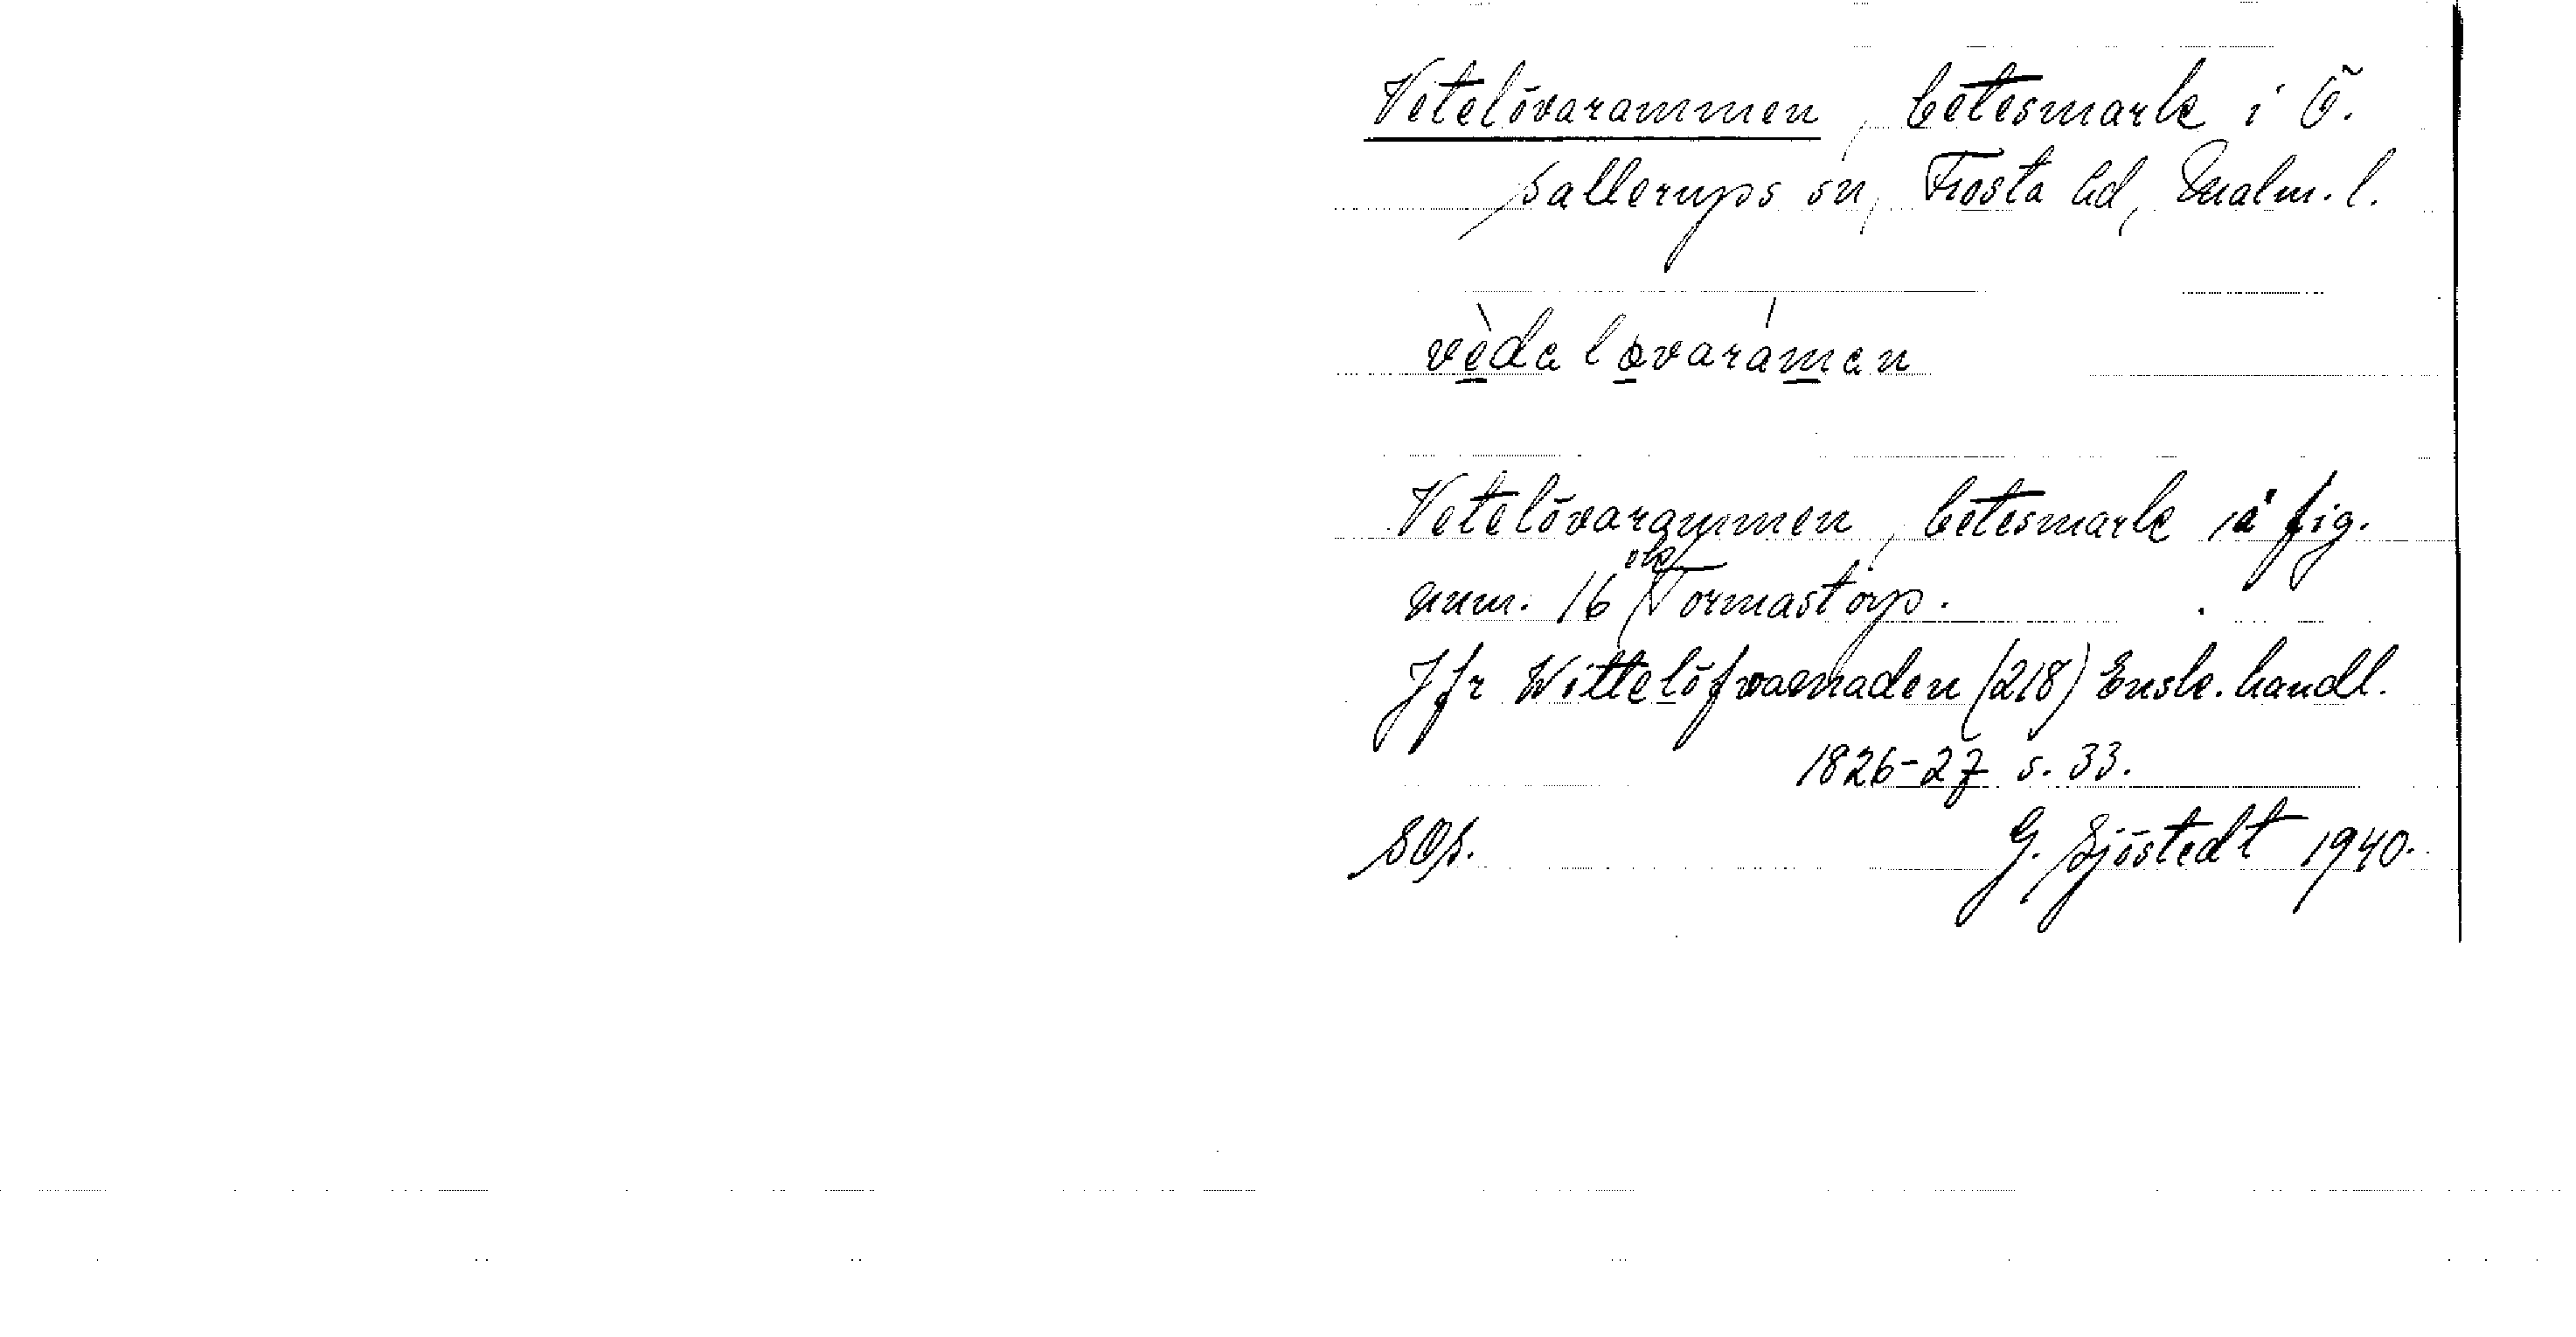 Vetelövarammen, betesmark i Ö.
Sallerups sn, Frosta hd, Malm. l.
vèdalovarámen
Vetelövarammen, betesmark å fig.
num. 16 Tormastorp.
Jfr Wittelöfvamaden (218) Ensk. handl.
1826-27 s. 33.
SOS. G. Sjöstedt 1940.